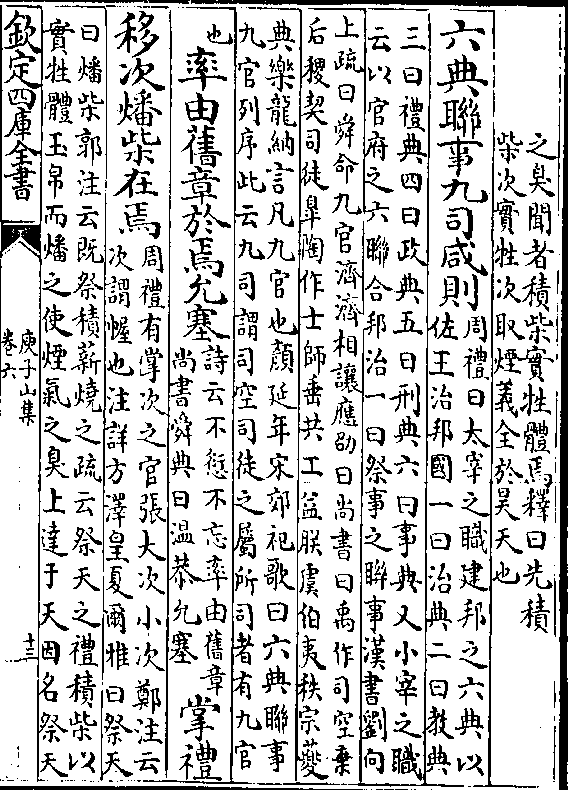 之臭聞者積柴實牲體焉釋曰先積
柴次實牲次取煙義全於昊天也
六典聯事九司咸則周禮曰太宰之職建邦之六典以
佐王治邦國一曰治典二曰教典
三曰禮典四曰政典五曰刑典六曰事典又小宰之職
云以官府之六聯合邦治一曰祭事之聯事漢書劉向
上疏曰舜命九官濟濟相讓應劭曰尚書曰禹作司空棄
后稷契司徒臯陶作士師垂共工益朕虞伯夷秩宗夔
典樂龍納言凡九官也顔延年宋郊祀歌曰六典聯事
九官列序此云九司謂司空司徒之屬所司者有九官
也
率由舊章於焉允塞詩云不愆不忘率由舊章
尚書舜典曰温恭允塞
掌禮
移次燔柴在焉周禮有掌次之官張大次小次鄭注云
次謂幄也注詳方澤皇夏爾雅曰祭天
曰燔柴郭注云既祭積薪燒之疏云祭天之禮積柴以
實牲體玉帛而燔之使煙氣之臭上達于天因名祭天
欽定四庫全書
庾子山集
卷六
十三